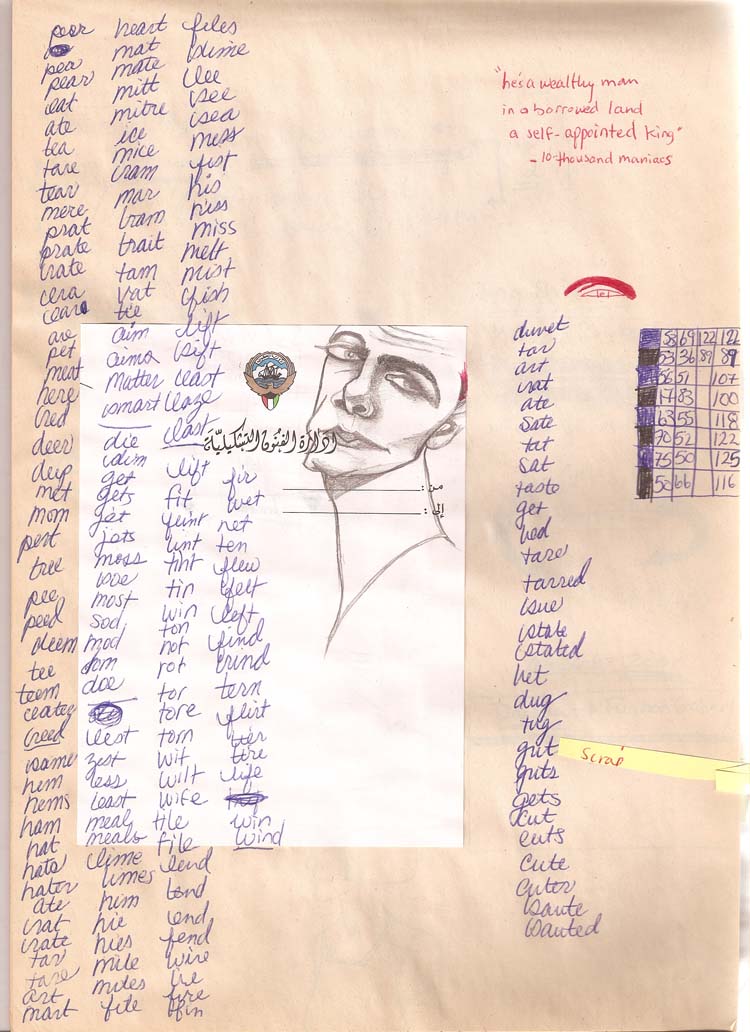 peer
pea
pear
eat
ate
tea
tare
tear
mere
prat
prate
rate
are
pet
meat
here
red
deer
deep
met
mom
pert
tree
pee
peed
deem
tee
teem
creed
same
hem
hems
ham
hat
hats
hater
ate
rat
rate
tar
tare
art
mart
heart
mat
mate
mitt
mitre
ice
mice
cram
mar
tram
trait
tam
vat
tie
aim
aims
matter
smart
die
dim
get
gets
jet
jets
moss
lose
most
sod
mod
doe
lest
zest
less
least
meal
meals
lime
limes
him
hie
hies
mile
miles
file
files
slime
lee
see
sea
mess
fist
his
hiss
miss
melt
mist
fish
lift
sift
last
laze
last
lift
fit
flint
lint
tint
tin
win
ton
not
rot
tor
tore
torn
wit
wilt
wife
tile
file
lend
tend
end
fend
wire
ire
fire
fin
fir
wet
net
ten
flew
felt
left
find
rind
tern
flirt
tier
tire
life
win
wind
إدارة الفنون التشكيليّة
من :
إلى :
"he's a wealthy man
in a borrowed land
a self-appointed king"
- 10-thousand maniacs
duvet
tar
art
rat
ate
sate
tat
sat
taste
get
bed
tare
tarred
sue
state
stated
bet
dug
tug
gut
guts
gets
cut
cuts
cute
cuter
saute
sauted
scrap
58 69 122 122
53 36 89 89
56 51 107
17 83 100
63 55 118
70 52 122
75 50 125
50 66 116